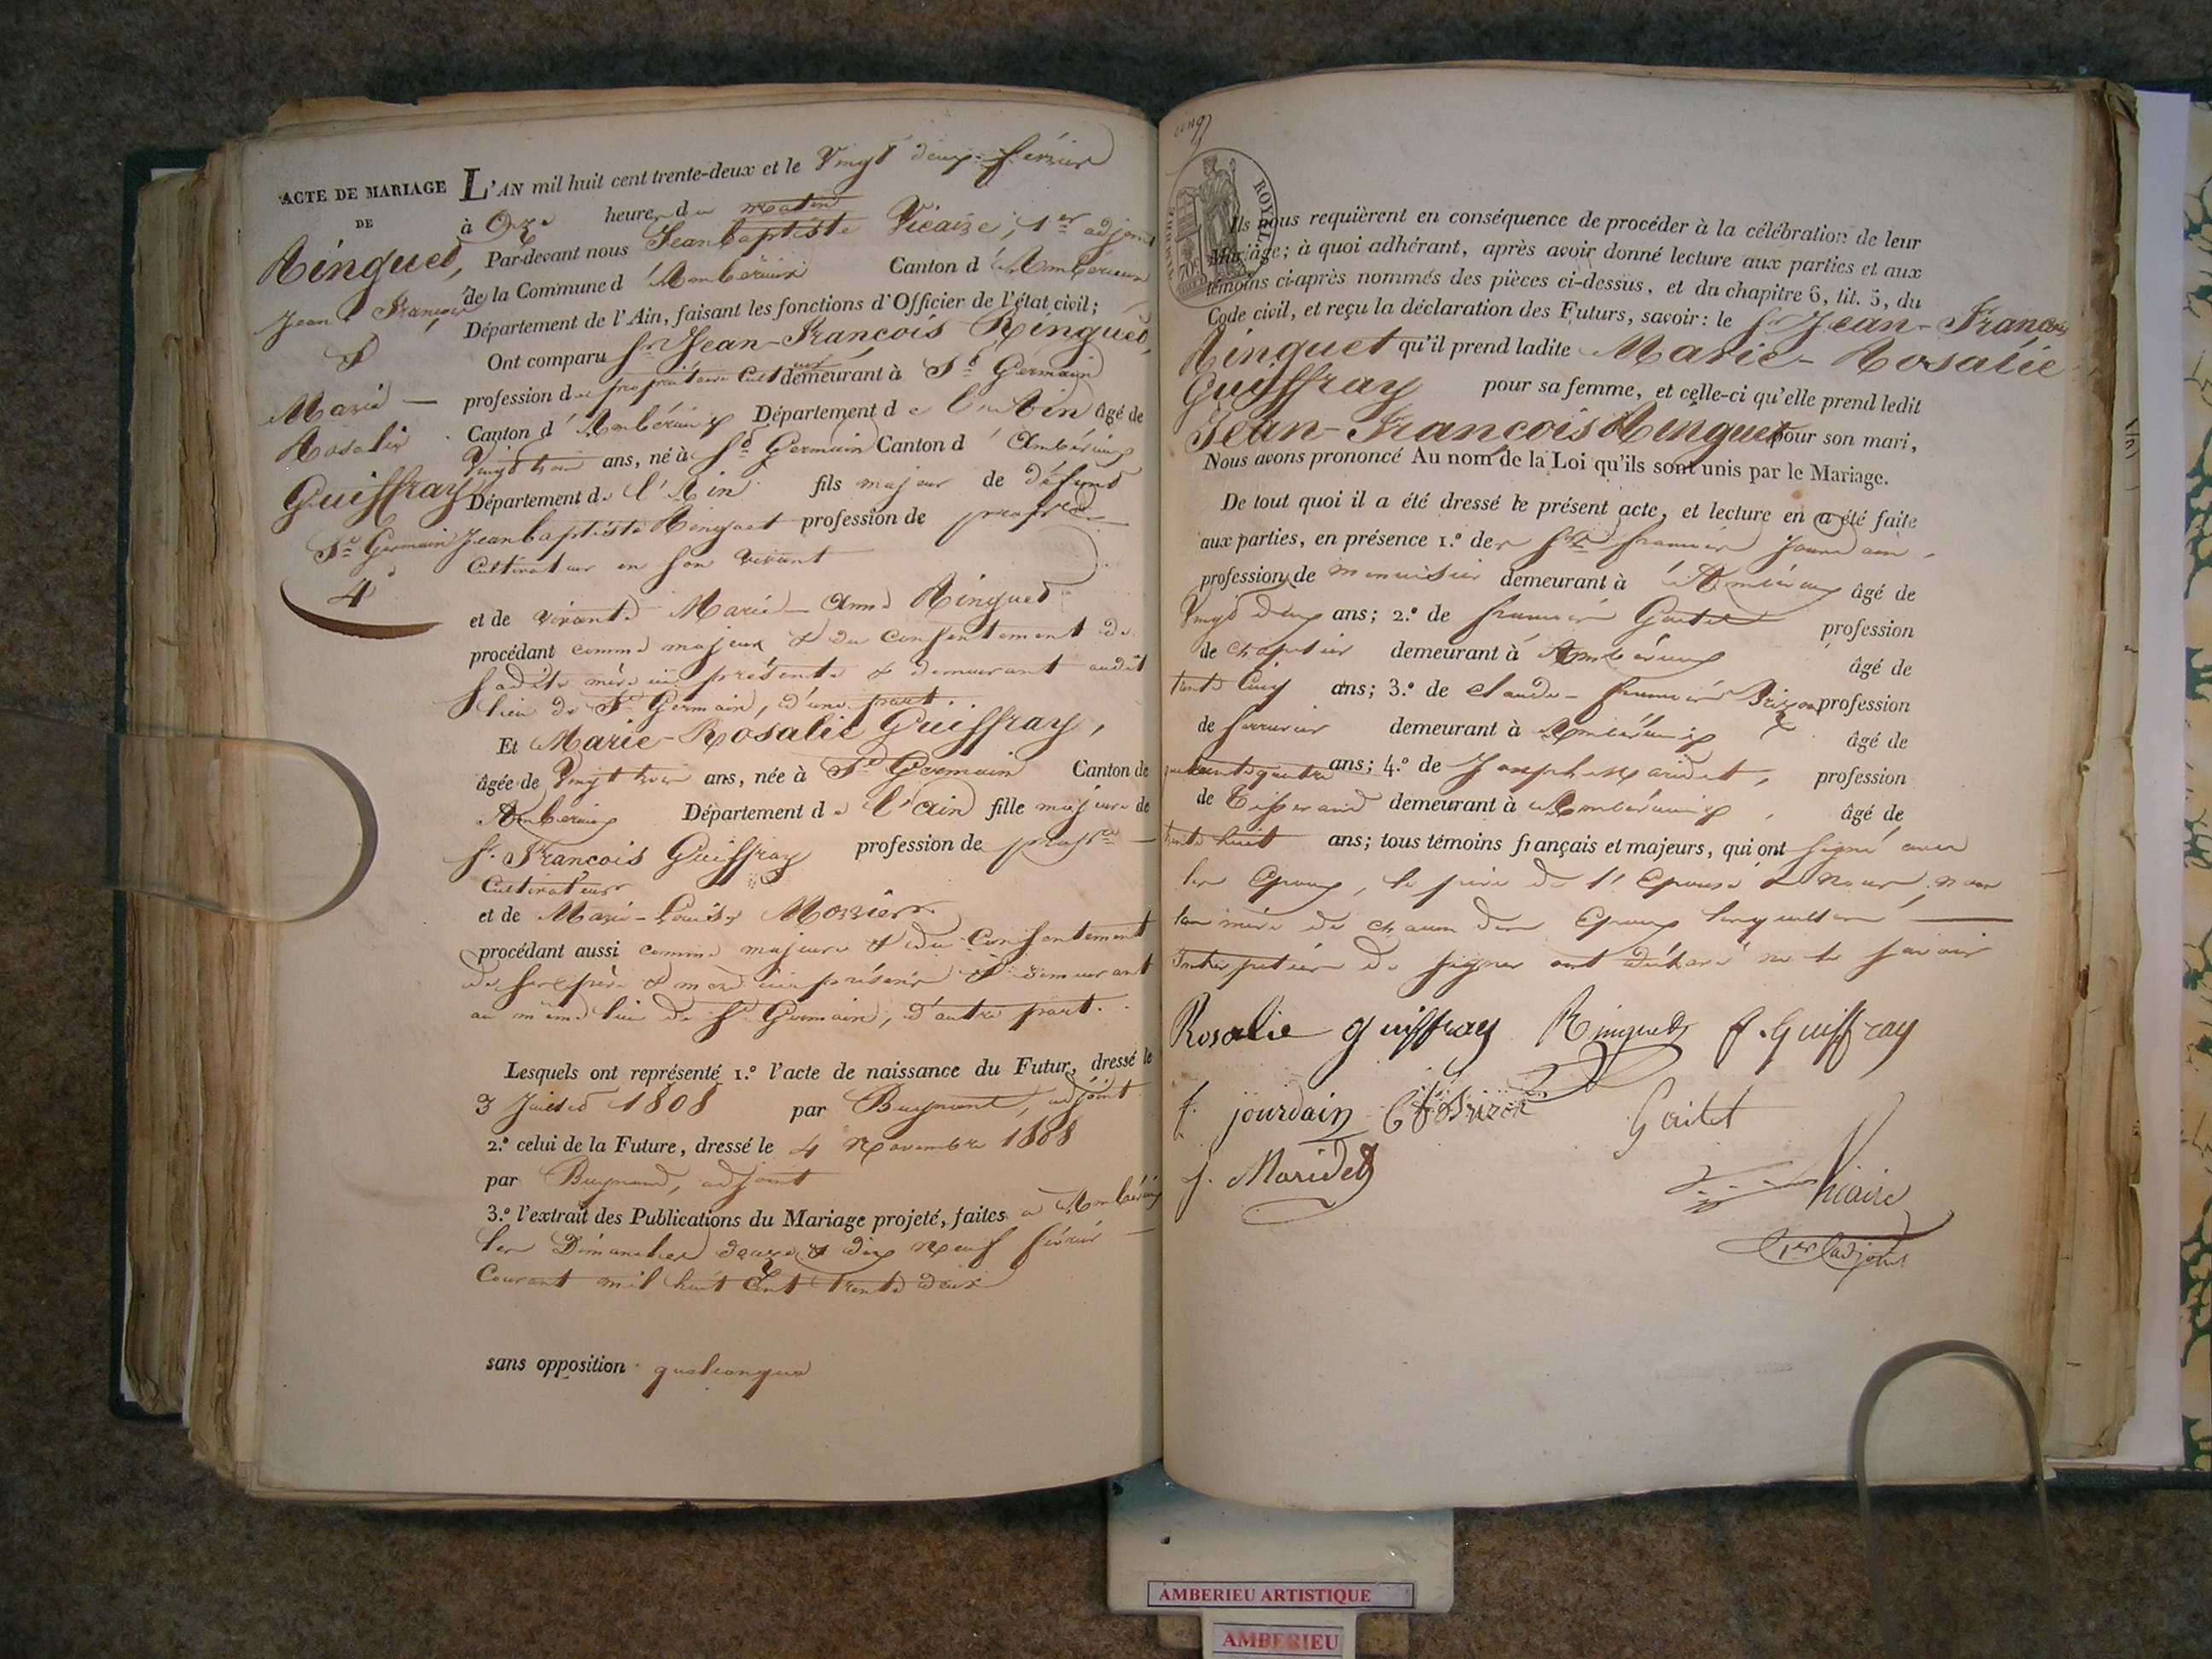 ACTE DE MARIAGE
DE
Ringued,
Jean François
&
Marie —
Rosalie
Guiffray
St Germain
4
L'AN mil huit cent trente-deux et le Vingt deux février
à Onze heure du matin
Par-devant nous Jean baptiste Vicaire, 1er adjoint
de la Commune d'Ambérieux Canton d'Ambérieux
Département de l'Ain, faisant les fonctions d'Officier de l'état civil;
Ont comparu Sr Jean-François Ringued,
profession de propriétaire Cultivateur demeurant à St Germain
Canton d'Ambérieux Département de l'Ain âgé de
Vingt trois ans, né à St Germain Canton d'Ambérieux
Département de l'Ain fils majeur de défunt
Jean baptiste Ringuet profession de propre
Cultivateur en son vivant
et de vivante Marie-Anne Ringued
procédant comme majeur & du consentement de
sadite mère ici présente & demeurant audit
lieu de St Germain, d'une part.
Et Marie-Rosalie Guiffray,
âgée de Vingt trois ans, née à St Germain Canton de
Ambérieux Département de l'Ain fille majeure de
Sr François Guiffray profession de propre —
Cultivateur
et de Marie-Louise
procédant aussi comme majeure & du Consentement
de ses père & mère ici présens & demeurant
au même lieu de St Germain, d'autre part.
Lesquels ont représenté 1.º l'acte de naissance du Futur, dressé le
3 Juillet 1808 par Buynand, adjoint
2.º celui de la Future, dressé le 4 Novembre 1808
par Buynand, adjoint
3.º l'extrait des Publications du Mariage projeté, faites à Ambérieux
les Dimanches douze & dix neuf février
Courant mil huit Cent trente deux
sans opposition quelconque
cinq
TIMBRE ROYAL
70c
Ils nous requièrent en conséquence de procéder à la célébration de leur
Mariage; à quoi adhérant, après avoir donné lecture aux parties et aux
témoins ci-après nommés des pièces ci-dessus, et du chapitre 6, tit. 5, du
Code civil, et reçu la déclaration des Futurs, savoir: le Sr Jean-François
Ringuet qu'il prend ladite Marie-Rosalie
Guiffray pour sa femme, et celle-ci qu'elle prend ledit
Jean-François Ringuet pour son mari,
Nous avons prononcé Au nom de la Loi qu'ils sont unis par le Mariage.
De tout quoi il a été dressé le présent acte, et lecture en a été faite
aux parties, en présence 1.º des Srs françois Jourdain,
profession de menuisier demeurant à Ambérieux âgé de
Vingt deux ans; 2.º de françois Gaitet profession
de Chapelier demeurant à Ambérieux âgé de
trente Cinq ans; 3.º de Claude-françois Brizon profession
de serrurier demeurant à Ambérieux âgé de
quarante quatre ans; 4.º de Joseph Maridet, profession
de Tisserand demeurant à Ambérieux, âgé de
trente huit ans; tous témoins français et majeurs, qui ont signé avec
les Epoux, le père de l'Epouse & Nous, non
les mère de chacun des Epoux lesquelles —
de signer ont déclaré ne le savoir
Rosalie guiffray Ringued f. guiffray
f. jourdain Cf Brizon Gaitet
j. Maridet
Vicaire
1er adjoint
AMBERIEU ARTISTIQUE
AMBERIEU